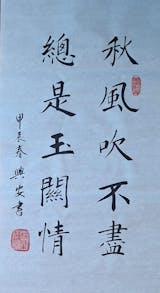 秋風吹不盡
總是玉關情
甲辰春興安書